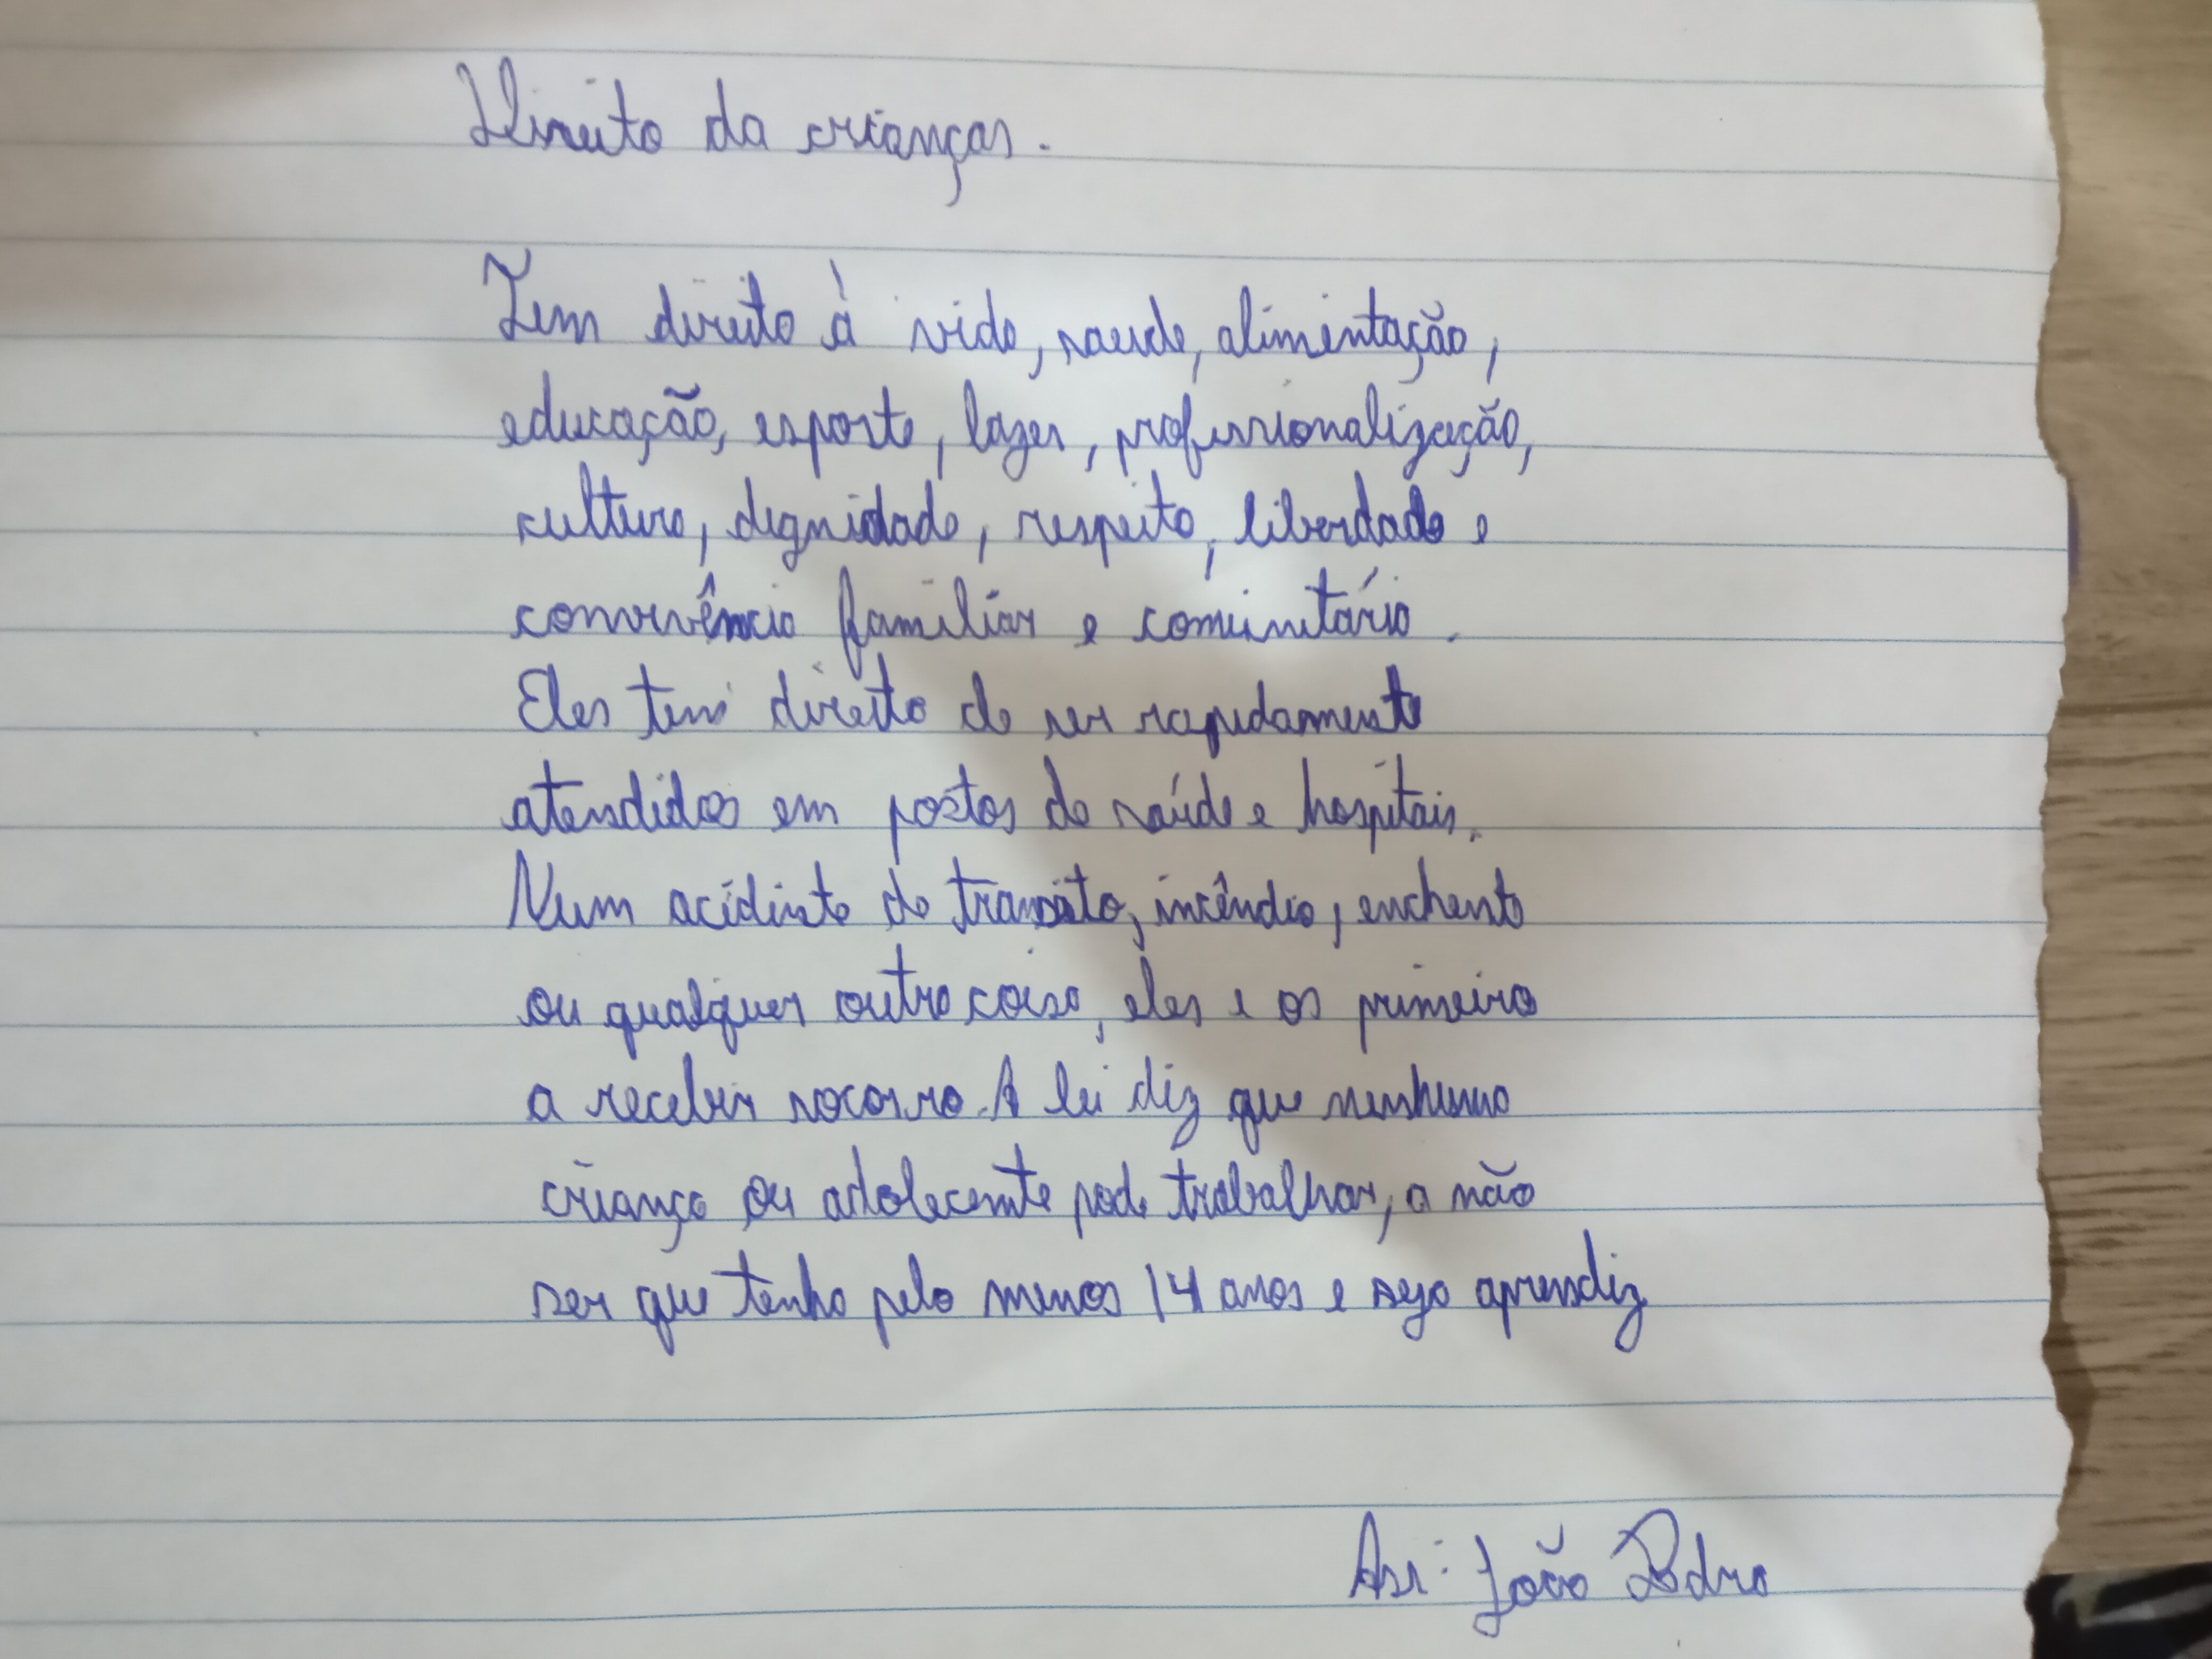 Direito da crianças.
Tem direito à vida, saude, alimentação,
educação, esporte, lazer, profissionalização,
cultura, dignidade, respeito, liberdade e
convivência familiar e comunitário.
Eles tem direito de ser rapidamente
atendidos em postos de saúde e hospitais.
Num acidente de transito, incêndio, enchente
ou qualquer outra coisa, eles e os primeiro
a receber socorro. A lei diz que nenhuma
criança ou adolecente pode trabalhar, a não
ser que tenha pelo menos 14 anos e seja aprendiz
Ass: João Pedro